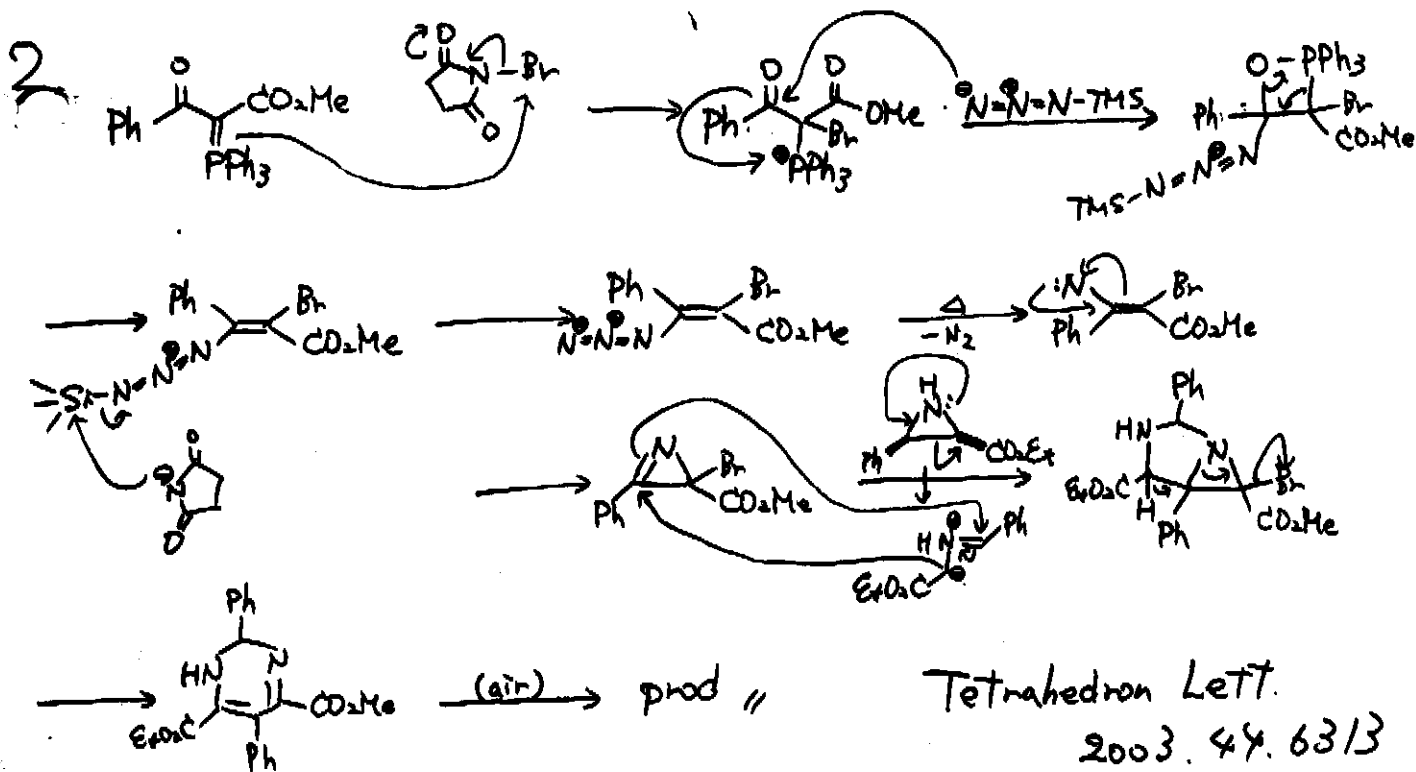 2
O
Ph
CO₂Me
PPh₃
O
N-Br
O
O O
Ph
Br
OMe
⊕PPh₃
⊖N=N⊕=N-TMS
O-PPh₃
Ph
Br
CO₂Me
TMS-N=N⊕=N
Ph
Br
CO₂Me
Si-N=N⊕=N
O
⊖N
O
Ph
Br
CO₂Me
N⊖=N⊕=N
Δ
-N₂
:N
Br
Ph
CO₂Me
N
Br
Ph
CO₂Me
H
N:
Ph
CO₂Et
HN
⊕
Ph
EtO₂C
⊖
Ph
HN
N
EtO₂C
H
Br
Ph
CO₂Me
Ph
HN
N
EtO₂C
CO₂Me
Ph
(air)
prod 〃
Tetrahedron Lett.
2003. 44. 6313